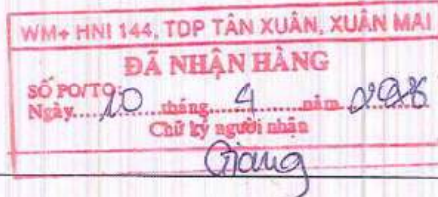 WM+ HNI 144, TDP TÂN XUÂN, XUÂN MAI
ĐÃ NHẬN HÀNG
SỐ PO/TO:
Ngày....10....tháng....4....năm
Chữ ký người nhận
Giang